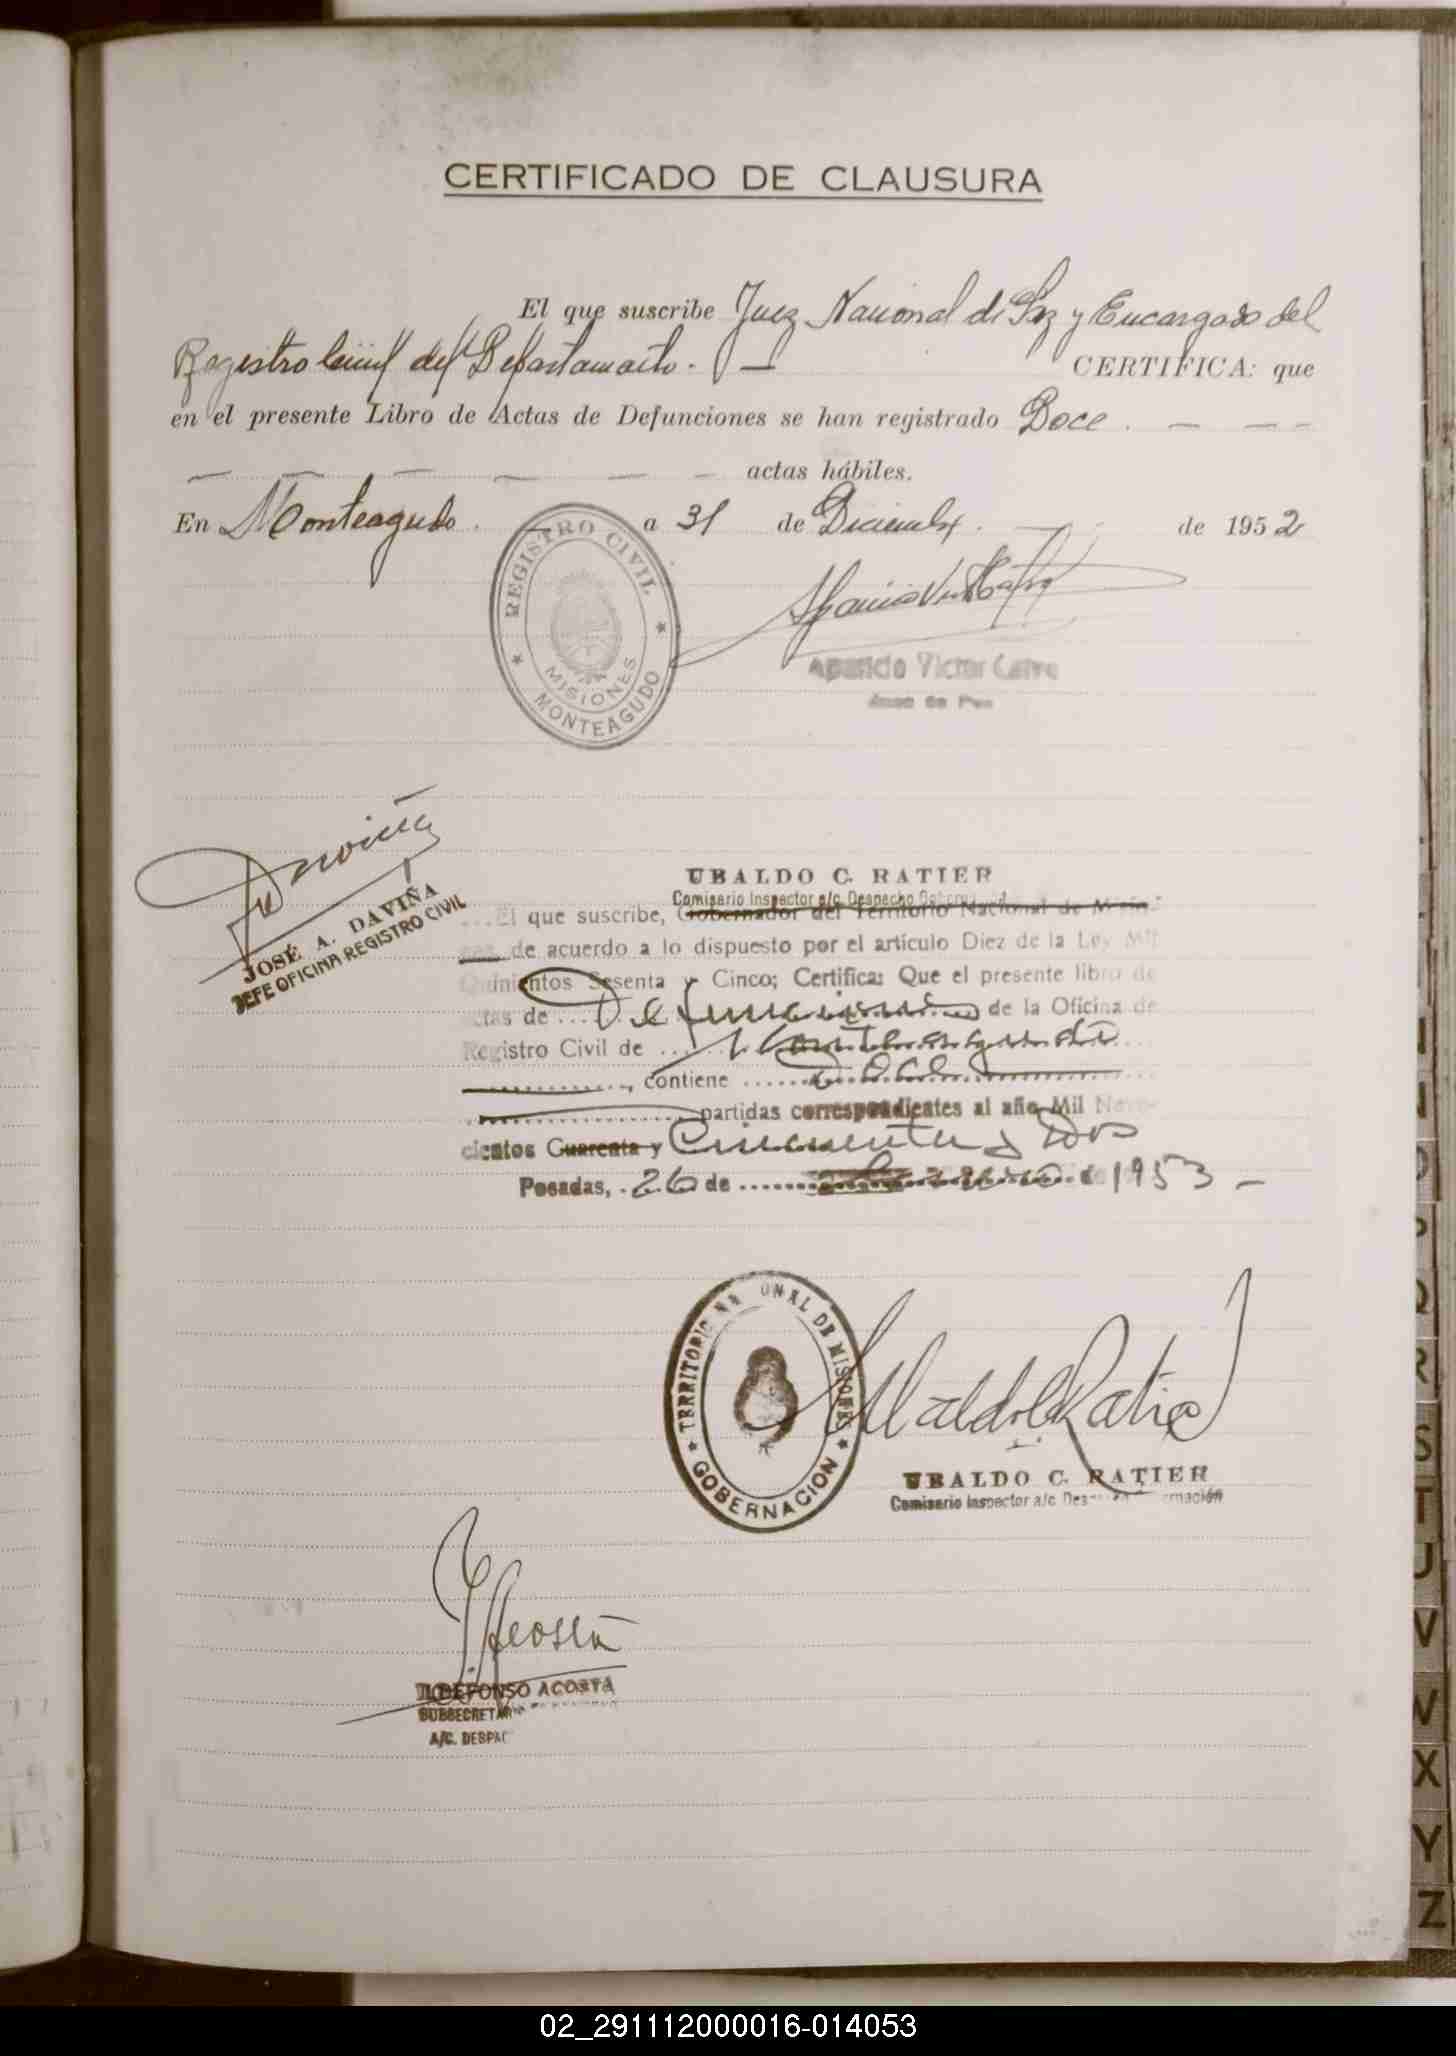 CERTIFICADO DE CLAUSURA
El que suscribe Juez Nacional de Paz y Encargado del
Registro Civil del Departamento. — CERTIFICA: que
en el presente Libro de Actas de Defunciones se han registrado Doce. — — —
— — — — — — actas hábiles.
En Monteagudo. — a 31 de Diciembre. — de 1952
REGISTRO CIVIL
MISIONES
MONTEAGUDO
Aparicio Victor Calvo
Juez de Paz
Daviña
JOSÉ A. DAVIÑA
JEFE OFICINA REGISTRO CIVIL
UBALDO C. RATIER
Comisario Inspector a/c Despacho Gobernación
...El que suscribe, Gobernador del Territorio Nacional de Misio-
nes de acuerdo a lo dispuesto por el artículo Diez de la Ley Mil
Quinientos Sesenta y Cinco; Certifica: Que el presente libro de
actas de Defunciones de la Oficina de
Registro Civil de Monteagudo
, contiene doce
partidas correspondientes al año Mil Nove-
cientos Cuarenta y Cincuenta y Dos
Posadas, 26 de de 1953 -
TERRITORIO NACIONAL DE MISIONES
GOBERNACION
Ubaldo C Ratier
UBALDO C. RATIER
Comisario Inspector a/c Despacho Gobernación
Y Acosta
ILDEFONSO ACOSTA
SUBSECRETARIO
A/C. DESPAC
P
Q
R
S
T
U
V
W
X
Y
Z
02_291112000016-014053